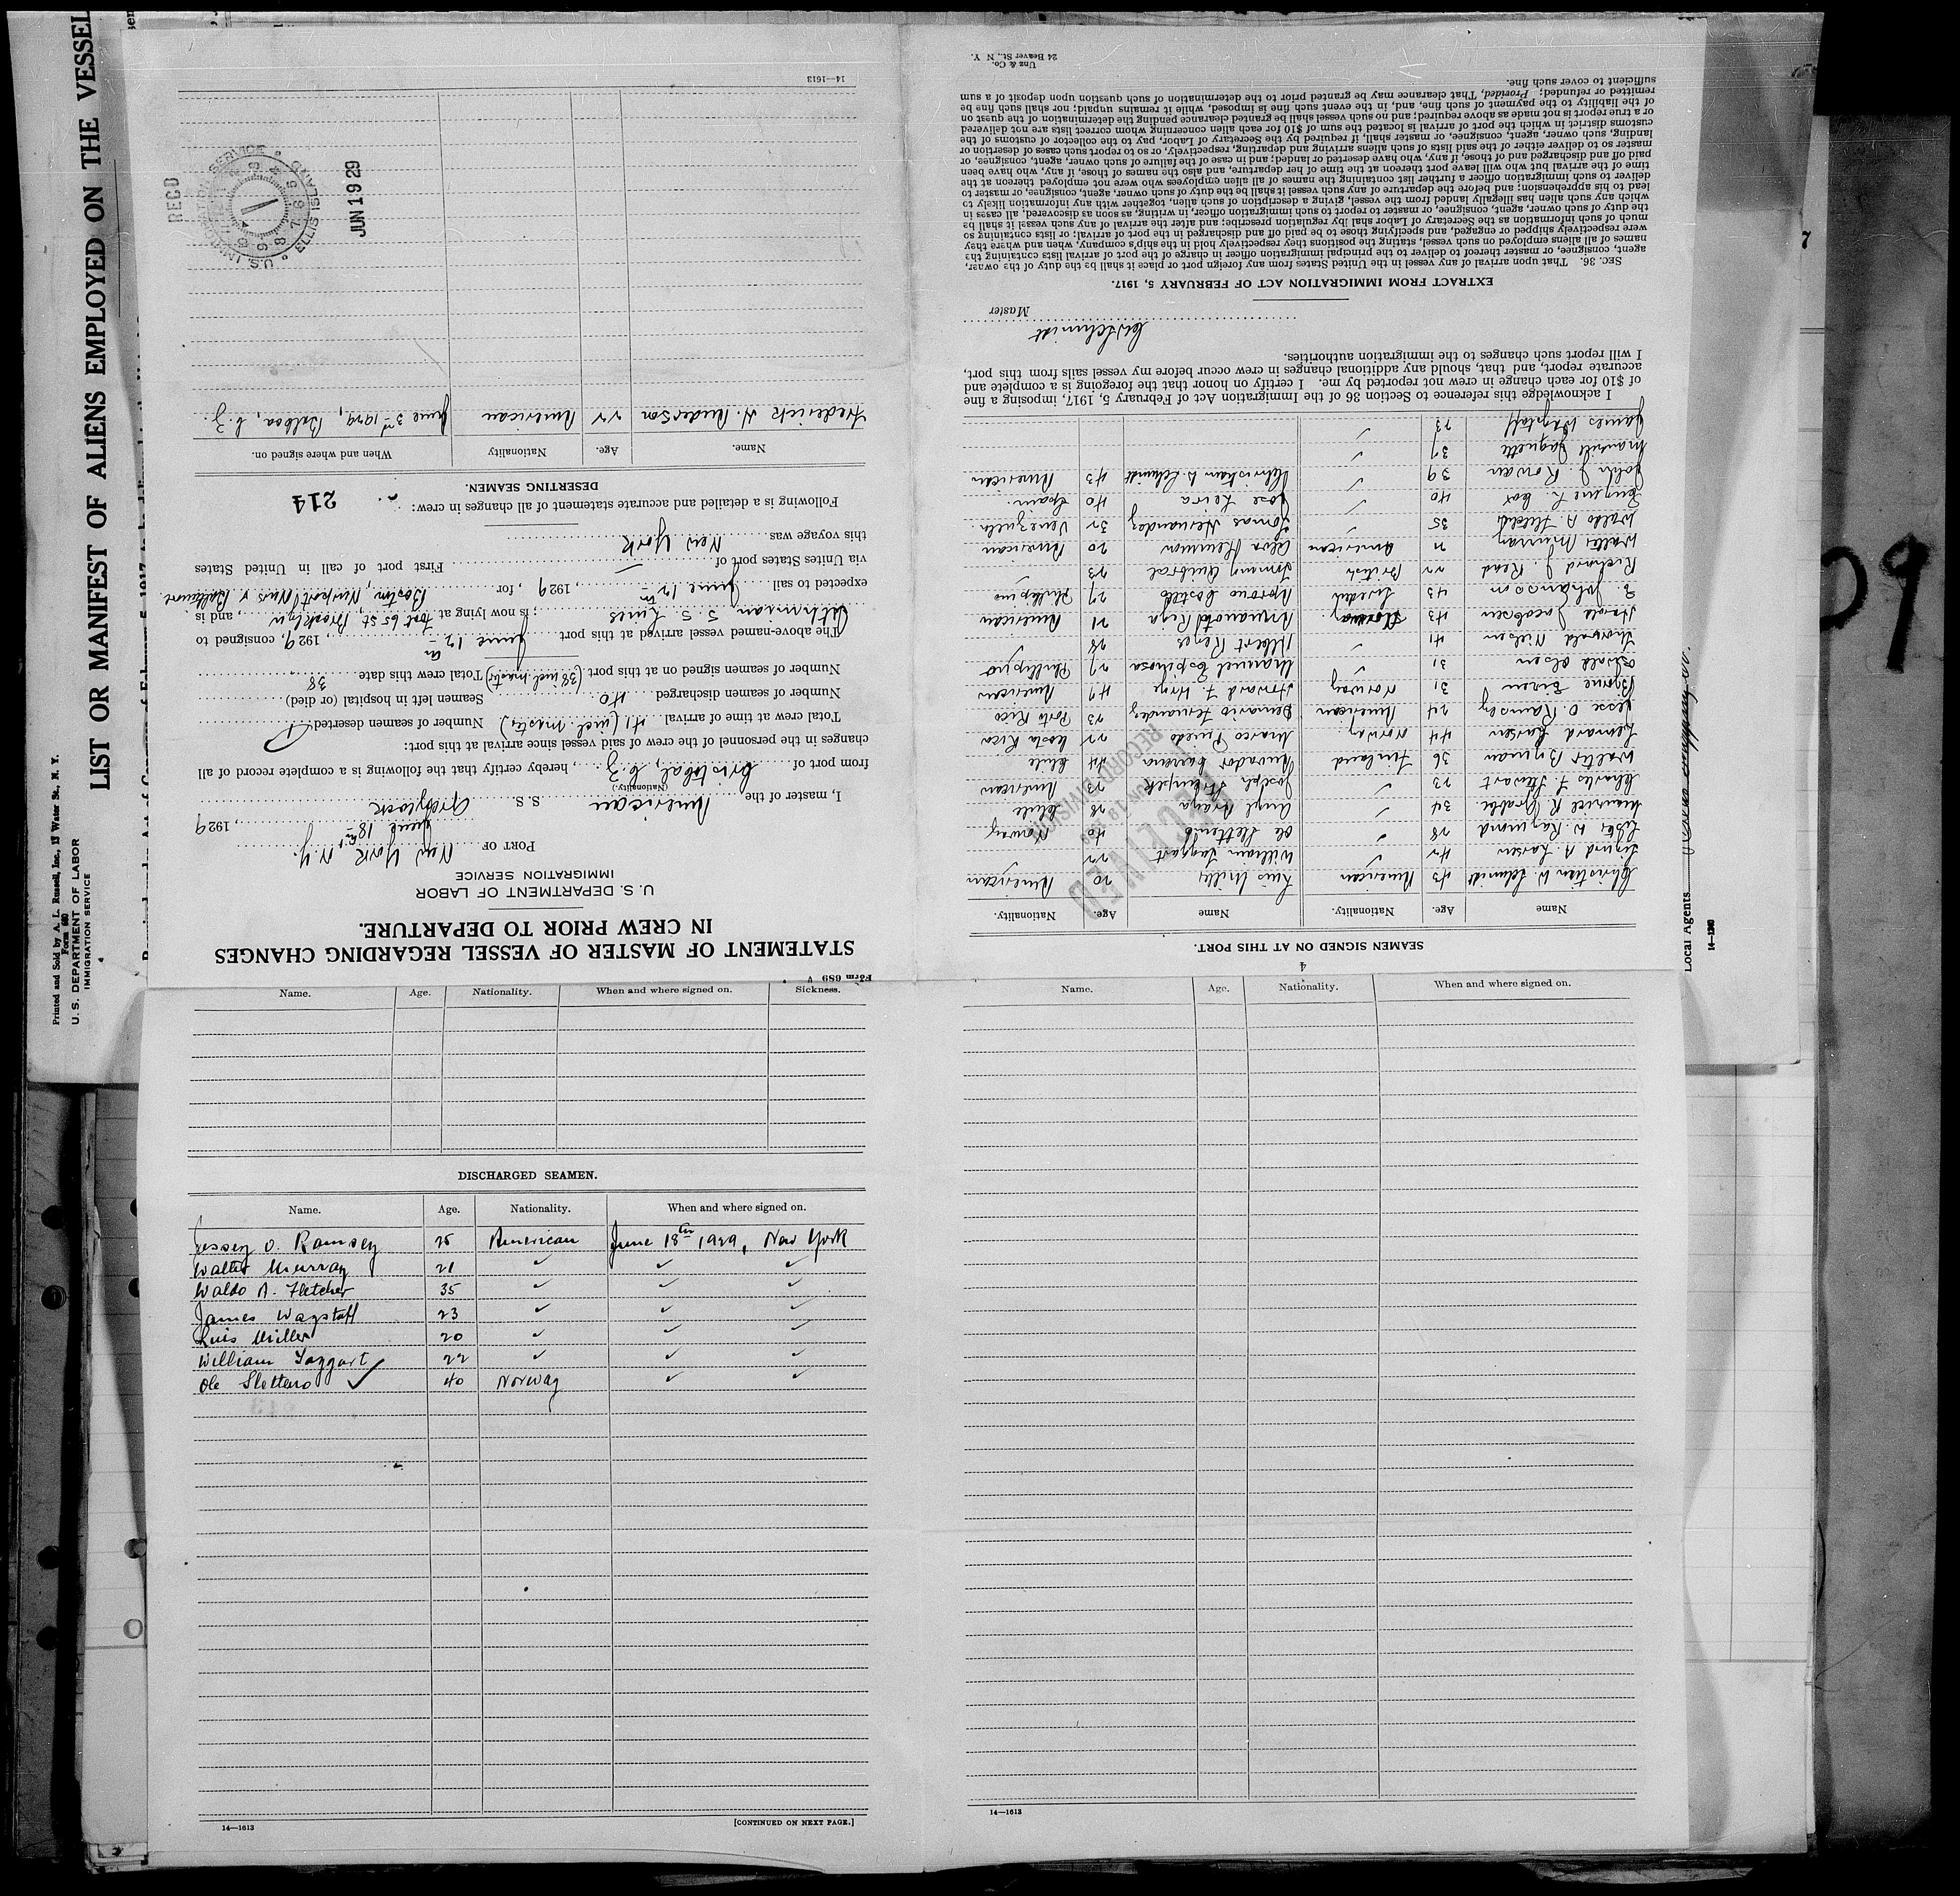 LIST OR MANIFEST OF ALIENS EMPLOYED ON THE VESSEL
Printed and Sold by A. L. Russell, Inc., 17 Water St., N. Y.
Form 680
U. S. DEPARTMENT OF LABOR
IMMIGRATION SERVICE
Form 689
STATEMENT OF MASTER OF VESSEL REGARDING CHANGES
IN CREW PRIOR TO DEPARTURE.
U. S. DEPARTMENT OF LABOR
IMMIGRATION SERVICE
PORT OF New York, N. Y.
June 18th, 1929
I, master of the American S. S. Graylock
(Nationality.)
from port of Cristobal, C. Z., hereby certify that the following is a complete record of all
changes in the personnel of the crew of said vessel since arrival at this port:
Total crew at time of arrival 41 (incl. master) Number of seamen deserted 1
Number of seamen discharged 40 Seamen left in hospital (or died)
Number of seamen signed on at this port (38 incl master) Total crew this date 38
The above-named vessel arrived at this port June 12th, 1929, consigned to
S. S. Lines; is now lying at foot 65 St, Brooklyn, and is
expected to sail June 19th, 1929, for Boston, Newport News & Baltimore
via Unites States port of First port of call in United States
this voyage was New York
Following is a detailed and accurate statement of all changes in crew:
214
DESERTING SEAMEN.
Name. Age. Nationality When and where signed on.
Frederick H. Anderson 22 American June 3rd 1929, Balboa, C. Z.
14—1613
RECD
U.S. IMMIGRATION SERVICE ELLIS ISLAND
JUN 19 29
Name. Age. Nationality. When and where signed on. Sickness.
DISCHARGED SEAMEN.
Name. Age. Nationality. When and where signed on.
Jessey O. Ramsey 25 American June 18th 1929, New York
Walter Murray 21 ✓ ✓ ✓
Waldo A. Fletcher 35 ✓ ✓ ✓
James Wagstaff 23 ✓ ✓ ✓
Luis Miller 20 ✓ ✓ ✓
William Taggart 22 ✓ ✓ ✓
Ole Sletteno ✓ 40 Norway ✓ ✓
14—1613
[CONTINUED ON NEXT PAGE.]
Name. Age. Nationality. When and where signed on.
14—1613
4
SEAMEN SIGNED ON AT THIS PORT.
Name Age. Nationality. Name Age. Nationality.
Christian W. Schmidt 43 American Luis Miller 20 American
Sigurd A. Larsen 42 ✓ William Taggart 22 ✓
Lester W. Raymond 28 ✓ Ole Sletteno 40 Norway
Maurice R. Grabbe 34 ✓ Angel Araya 28 Chile
Charles F. Stewart 23 ✓ Joseph 23 American
Walter Byman 36 Finland Salvador Carcamo 44 Chile
Lennard Larsen 44 Norway Marco Pinedo 22 Costa Rica
Jesse O. Ramsey 24 American Demario Fernandez 23 Porto Rico
Bjarne Eiren 31 Norway Howard F. Hoye 49 American
Oswald Olsen 31 ✓ Manuel Espinosa 27 Phillipino
Thorvald Nielsen 41 ✓ Albert Reyes 28 ✓
Harald Jacobsen 43 Norway Armando Reza 21 American
E. Johansson 45 Sweden Costello 27 Phillipino
Richard J. Read 22 British Tommy Quibral 23 ✓
Walter Murray 21 American Alva Harmon 20 American
Waldo A. Fletcher 35 ✓ Tomas Hernandez 32 Venezuela
Eugene L. Cox 40 ✓ Jose Leira 40 Spain
John J. Rowan 39 ✓ Christian W. Schmidt 43 American
Manville Jaquette 37 ✓
James Wagstaff 23 ✓
RECEIVED
JUN 19 1929
RECORD DIVISION
I acknowledge this reference to Section 36 of the Immigration Act of February 5, 1917, imposing a fine
of $10 for each change in crew not reported by me. I certify on honor that the foregoing is a complete and
accurate report, and that, should any additional changes in crew occur before my vessel sails from this port,
I will report such changes to the immigration authorities.
CWSchmidt
Master
EXTRACT FROM IMMIGRATION ACT OF FEBRUARY 5, 1917.
SEC. 36. That upon arrival of any vessel in the United States from any foreign port or place it shall be the duty of the owner,
agent, consignee, or master thereof to deliver to the principal immigration officer in charge of the port of arrival lists containing the
names of all aliens employed on such vessel, stating the positions they respectively hold in the ship's company, when and where they
were respectively shipped or engaged, and specifying those to be paid off and discharged in the port of arrival; or lists containing so
much of such information as the Secretary of Labor shall by regulation prescribe; and after the arrival of any such vessel it shall be
the duty of such owner, agent, consignee, or master to report to such immigration officer, in writing, as soon as discovered, all cases in
which any such alien has illegally landed from the vessel, giving a description of such alien, together with any information likely to
lead to his apprehension; and before the departure of any such vessel it shall be the duty of such owner, agent, consignee, or master to
deliver to such immigration officer a further list containing the names of all alien employees who were not employed thereon at the
time of the arrival but who will leave port thereon at the time of her departure, and also the names of those, if any, who have been
paid off and discharged and of those, if any, who have deserted or landed; and in case of the failure of such owner, agent, consignee, or
master so to deliver either of the said lists of such aliens arriving and departing, respectively, or so to report such cases of desertion or
landing, such owner, agent, consignee, or master shall, if required by the Secretary of Labor, pay to the collector of customs of the
customs district in which the port of arrival is located the sum of $10 for each alien concerning whom correct lists are not delivered
or a true report is not made as above required; and no such vessel shall be granted clearance pending the determination of the quest on
of the liability to the payment of such fine, and, in the event such fine is imposed, while it remains unpaid; nor shall such fine be
remitted or refunded; Provided, That clearance may be granted prior to the determination of such question upon deposit of a sum
sufficient to cover such fine.
Unz & Co.
24 Beaver St., N Y.
Local Agents
14—1240
7
09